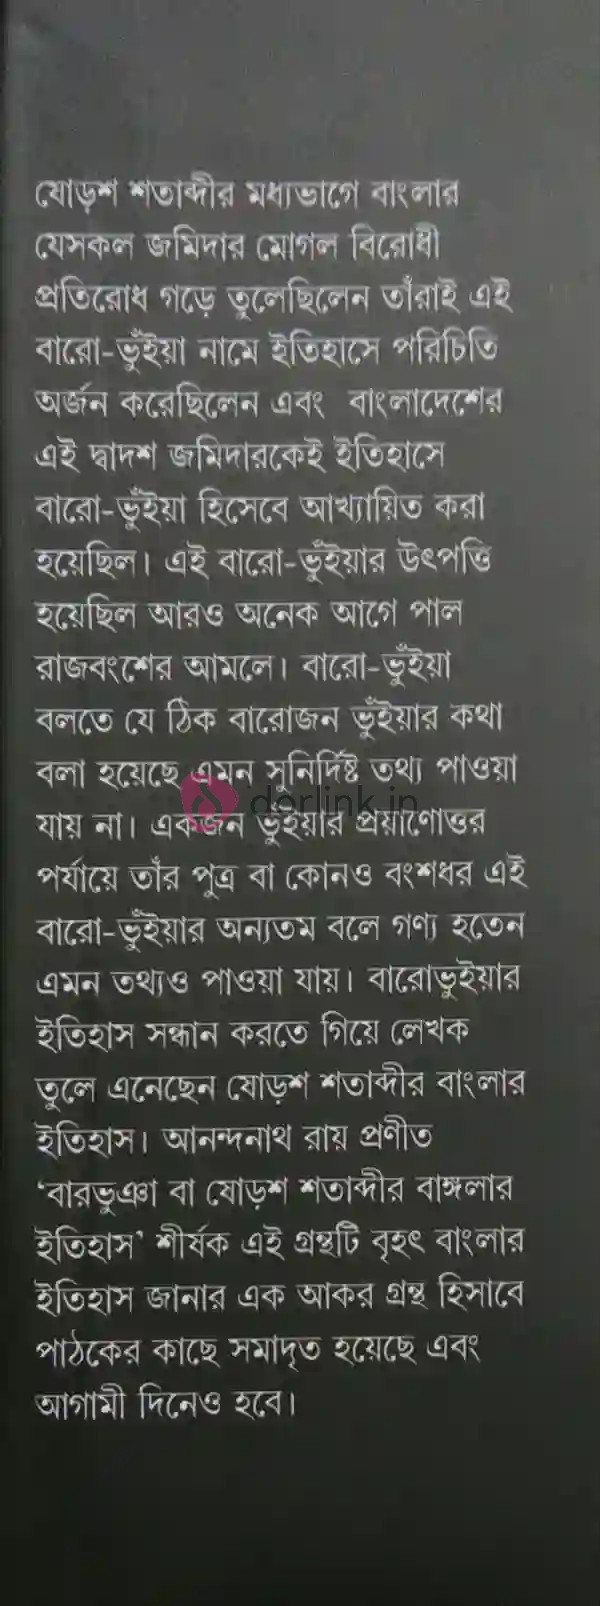 ষোড়শ শতাব্দীর মধ্যভাগে বাংলার
যেসকল জমিদার মোগল বিরোধী
প্রতিরোধ গড়ে তুলেছিলেন তাঁরাই এই
বারো-ভুঁইয়া নামে ইতিহাসে পরিচিতি
অর্জন করেছিলেন এবং বাংলাদেশের
এই দ্বাদশ জমিদারকেই ইতিহাসে
বারো-ভুঁইয়া হিসেবে আখ্যায়িত করা
হয়েছিল। এই বারো-ভুঁইয়ার উৎপত্তি
হয়েছিল আরও অনেক আগে পাল
রাজবংশের আমলে। বারো-ভুঁইয়া
বলতে যে ঠিক বারোজন ভুঁইয়ার কথা
বলা হয়েছে এমন সুনির্দিষ্ট তথ্য পাওয়া
dorlink.in
যায় না। একজন ভুঁইয়ার প্রয়াণোত্তর
পর্যায়ে তাঁর পুত্র বা কোনও বংশধর এই
বারো-ভুঁইয়ার অন্যতম বলে গণ্য হতেন
এমন তথ্যও পাওয়া যায়। বারোভুইয়ার
ইতিহাস সন্ধান করতে গিয়ে লেখক
তুলে এনেছেন ষোড়শ শতাব্দীর বাংলার
ইতিহাস। আনন্দনাথ রায় প্রণীত
‘বারভুঞা বা ষোড়শ শতাব্দীর বাঙ্গলার
ইতিহাস’ শীর্ষক এই গ্রন্থটি বৃহৎ বাংলার
ইতিহাস জানার এক আকর গ্রন্থ হিসাবে
পাঠকের কাছে সমাদৃত হয়েছে এবং
আগামী দিনেও হবে।